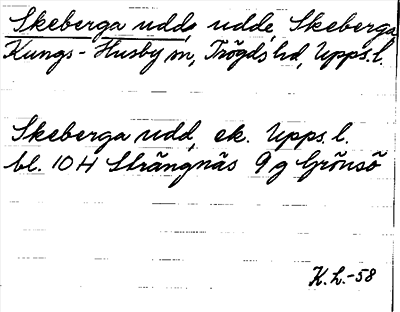 Skeberga udd, udde, Skeberga,
Kungs-Husby sn, Trögds hd, Upps. l.
Skeberga udd, ek. Upps. l.
bl. 10 H Strängnäs 9 g Grönsö
K.L.-58